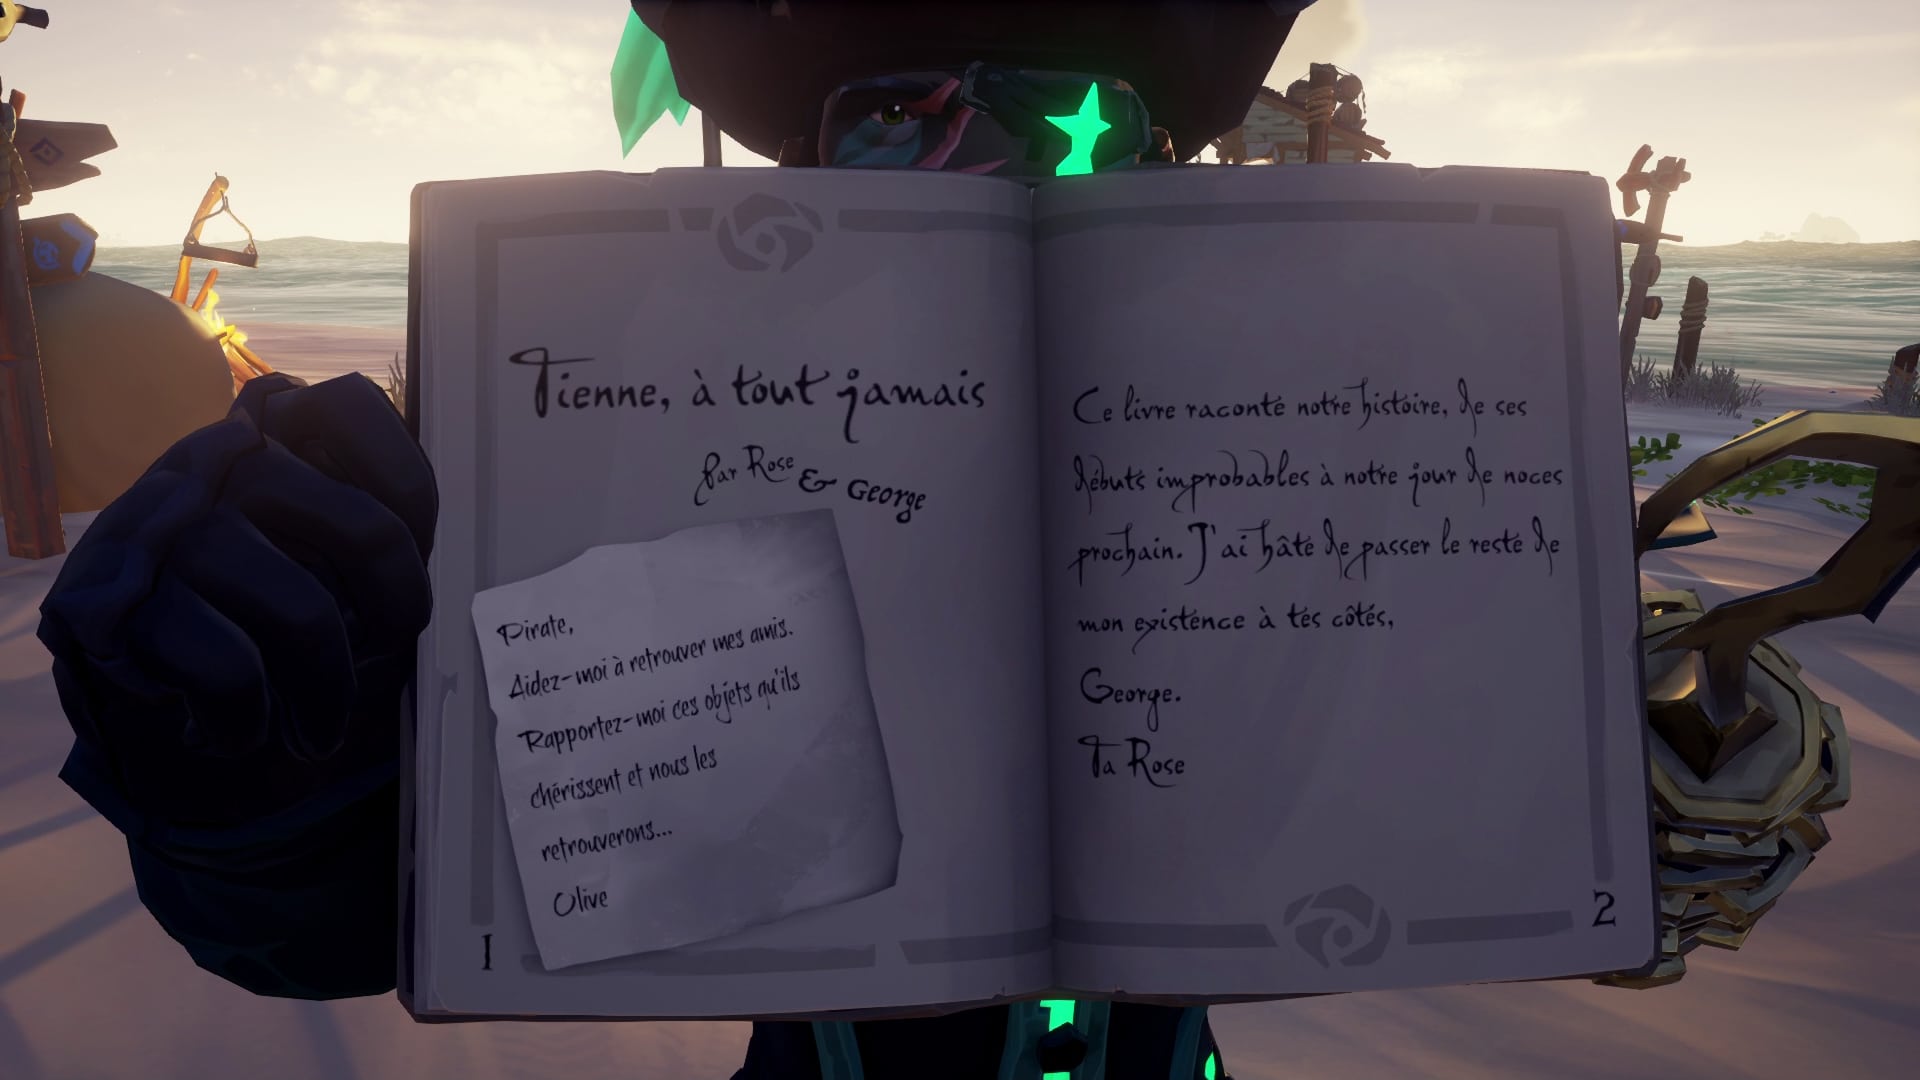 Tienne, à tout jamais
Par Rose & George
Pirate,
Aidez-moi à retrouver mes amis.
Rapportez-moi ces objets qu'ils
chérissent et nous les
retrouverons...
Olive
1
Ce livre raconte notre histoire, de ses
débuts improbables à notre jour de noces
prochain. J'ai hâte de passer le reste de
mon existence à tes côtés,
George.
Ta Rose
2